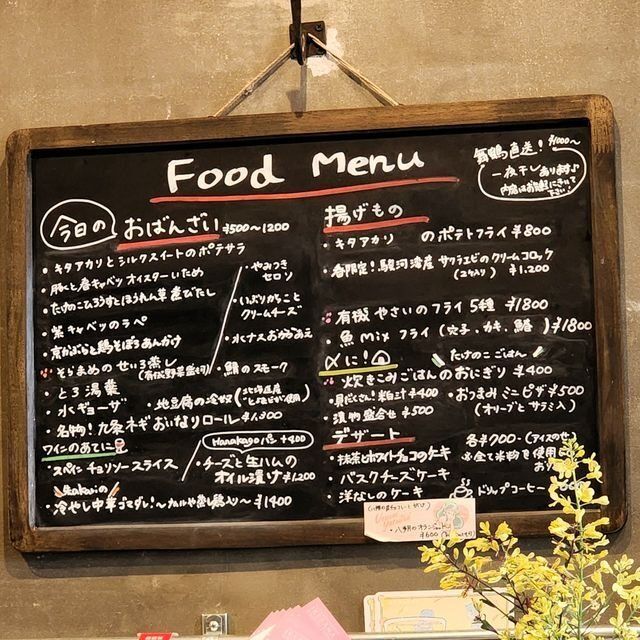 Food Menu
舞鶴直送! ¥1000〜
一夜干しあります♪
内容はお気軽にきいて下さい!
今日の おばんざい ¥500〜1200
・キタアカリとシルクスイートのポテサラ
・豚と春キャベツ オイスターいため
・たけのこひろうすとほうれん草煮びたし
・紫キャベツのラペ
・京かぶらと鶏そぼろあんかけ
・そらまめのせいろ蒸し
・とろ湯葉
・水ギョーザ
・地豆腐の冷奴
・名物! 九条ネギおいなりロール ¥1,300
・やみつきセロリ
・いぶりがっこクリームチーズ
・水ナスおかかあえ
・鯖のスモーク
ワインのあてに
・スペイン チョリソースライス
Hanakagoパン +400
・チーズと生ハムのオイル漬け ¥1,200
・冷やし中華ゴマダレ!〜カニや蒸し鶏入り〜 ¥1400
揚げもの
・キタアカリ のポテトフライ ¥800
・春限定!駿河湾産 サクラエビのクリームコロッケ
(2ケ入り) ¥1,200
・有機 やさいのフライ 5種 ¥1800
・魚mix フライ (穴子、カキ、鱚) ¥1800
〆に!
たけのこごはん
・炊きこみごはんのおにぎり ¥400
・具だくさん! 粕汁 ¥400
・漬物盛合せ ¥500
・おつまみ ミニピザ ¥500
(オリーブと サラミ入)
デザート
各¥700-(アイスのせ
・抹茶とホワイトチョコのケーキ
・バスクチーズケーキ
・洋なしのケーキ
※全て米粉を使用
ドリップコーヒー